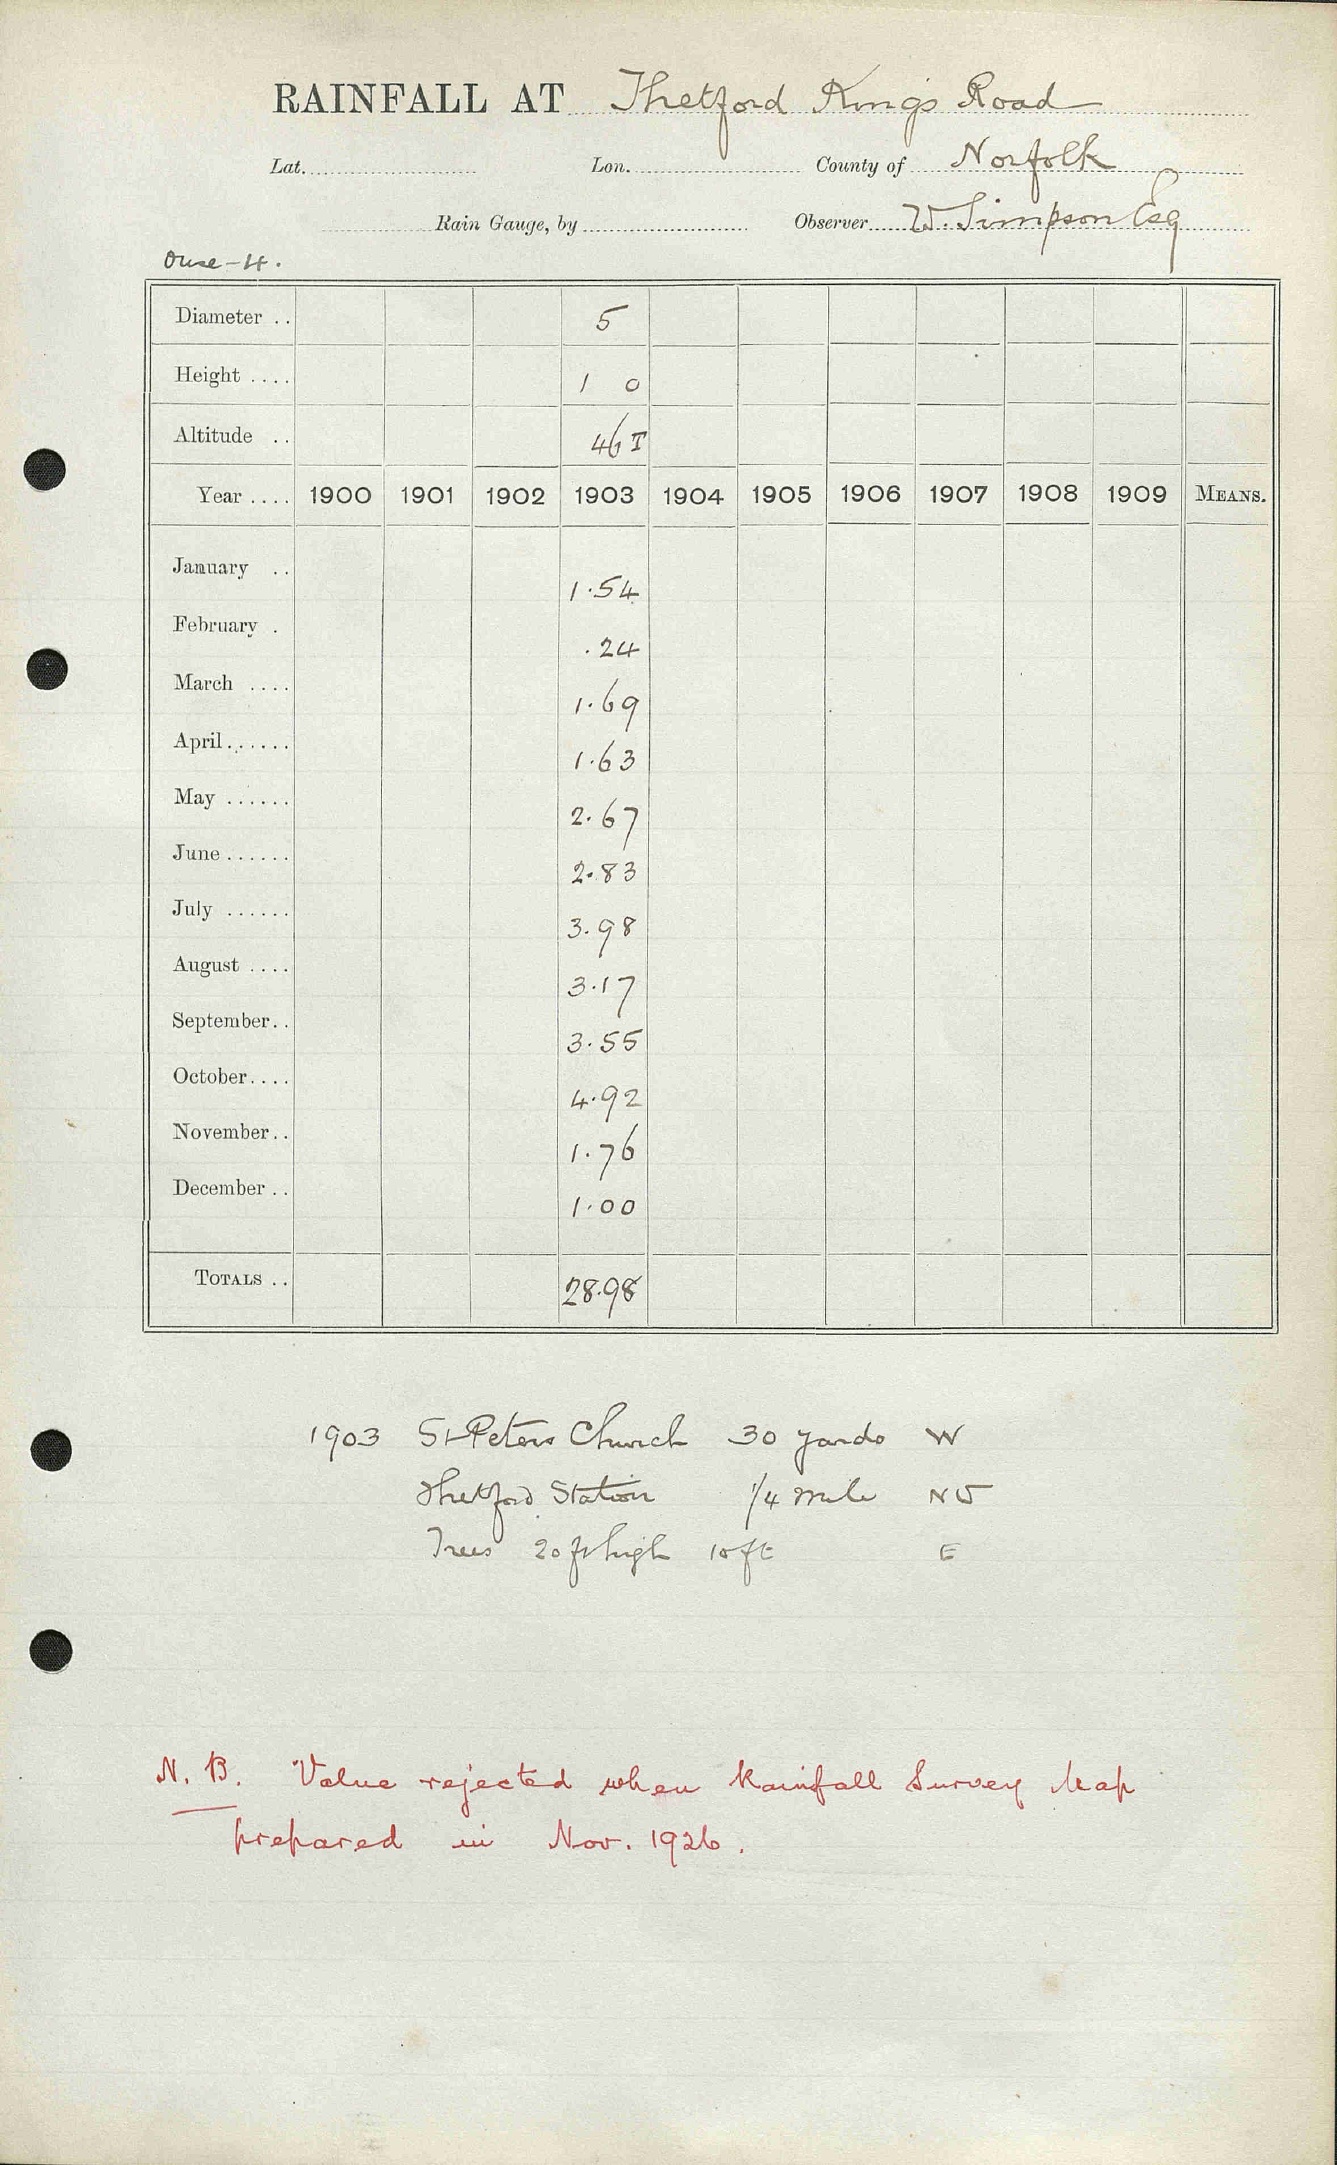 RAINFALL AT Thetford Kings Road
Lat. Lon. County of Norfolk
Rain Gauge, by Observer W. Simpson Esq
Ouse-4.
Diameter .. 5
Height .... 1 0
Altitude .. 46 T
Year .... 1900 1901 1902 1903 1904 1905 1906 1907 1908 1909 MEANS.
January .. 1.54
February . .24
March .... 1.69
April ...... 1.63
May ...... 2.67
June ...... 2.83
July ...... 3.98
August .... 3.17
September .. 3.55
October .... 4.92
November .. 1.76
December .. 1.00
TOTALS .. 28.98
1903 St Peters Church 30 yards W
Thetford Station 1/4 mile NW
Trees 20 ft high 10 ft E
N. B. Value rejected when Rainfall Survey Map
prepared in Nov. 1926.